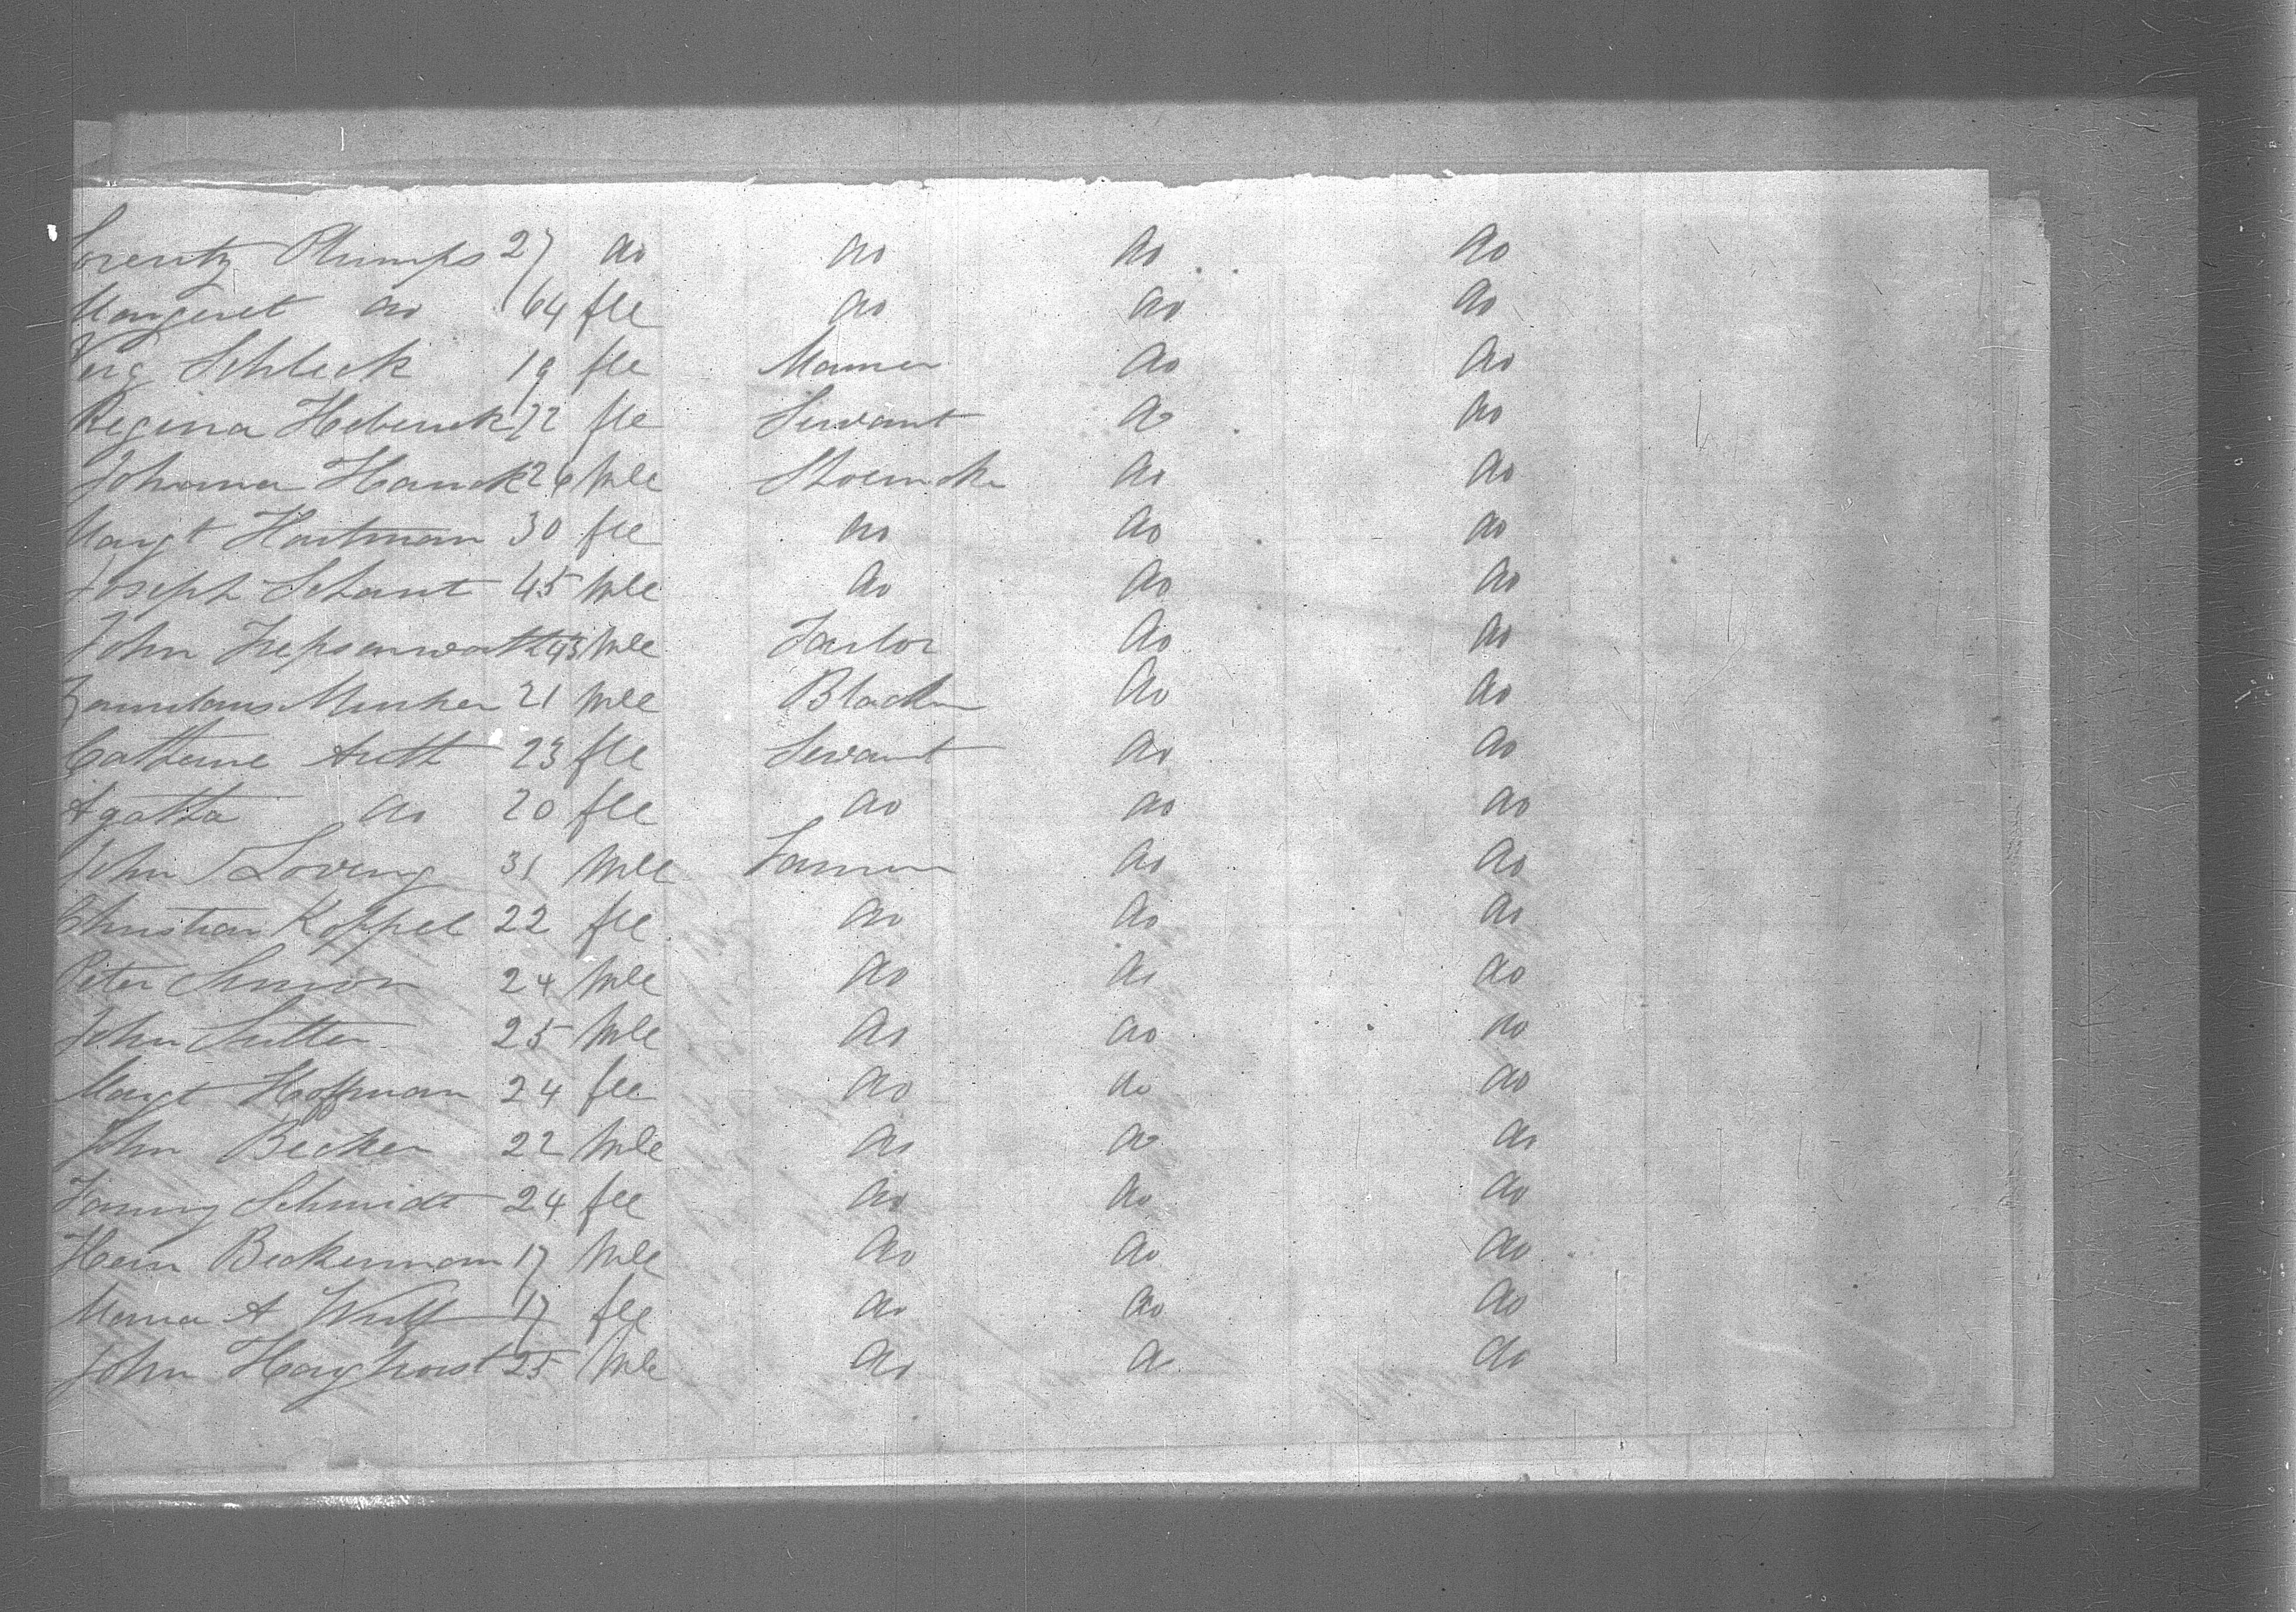 Lorentz Plumps 27 do do do do
Margeret do 64 fle do do do
Schleck 19 fle do do
Regina 22 fle Servant do do
Johanna Hauck 26 Mle do do
Margt Hartman 30 fle do do do
Joseph Schant 45 Mle do do do
John 43 Mle Tailor do do
21 Mle do do
Catherine Auth 23 fle Servant do do
Agatha do 20 fle do do do
John Loveng 31 Mle Farmer do do
Christian Koppel 22 fle do do do
Peter Simon 24 Mle do do do
John Sutter 25 Mle do do do
Margt Hoffman 24 fle do do do
John Becker 22 Mle do do do
Fanny Schmidt 24 fle do do do
Hein Beckermann 17 Mle do do do
Maria A Wulf 17 fle do do do
John Hayhorst 25 Mle do do do